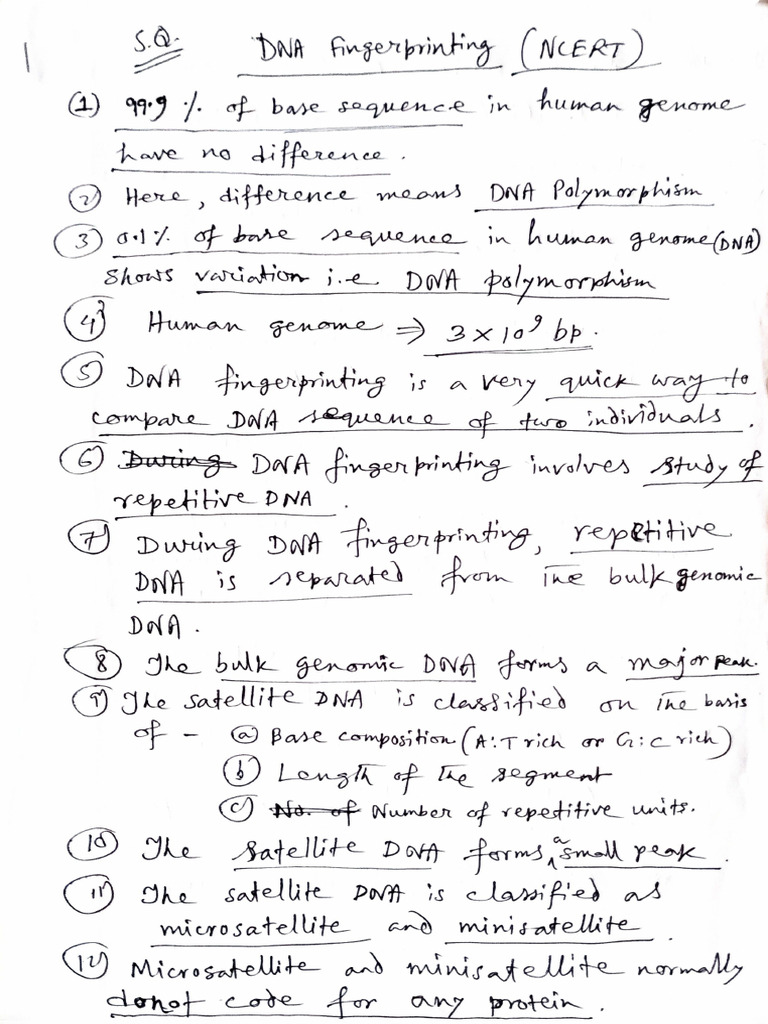 1 S.Q. DNA fingerprinting (NCERT)
(1) 99.9 % of base sequence in human genome
have no difference.
(2) Here, difference means DNA Polymorphism
(3) 0.1% of base sequence in human genome (DNA)
shows variation i.e DNA polymorphism
(4) Human genome ⇒ 3 × 10⁹ bp.
(5) DNA fingerprinting is a very quick way to
compare DNA sequence of two individuals.
(6) During DNA fingerprinting involves study of
repetitive DNA.
(7) During DNA fingerprinting, repetitive
DNA is separated from the bulk genomic
DNA.
(8) The bulk genomic DNA forms a major peak.
(9) The satellite DNA is classified on the basis
of - (a) Base composition (A:T rich or G:C rich)
(b) Length of the segment
(c) No. of Number of repetitive units.
(10) The satellite DNA forms a small peak.
(11) The satellite DNA is classified as
microsatellite and minisatellite.
(12) Microsatellite and minisatellite normally
donot code for any protein.